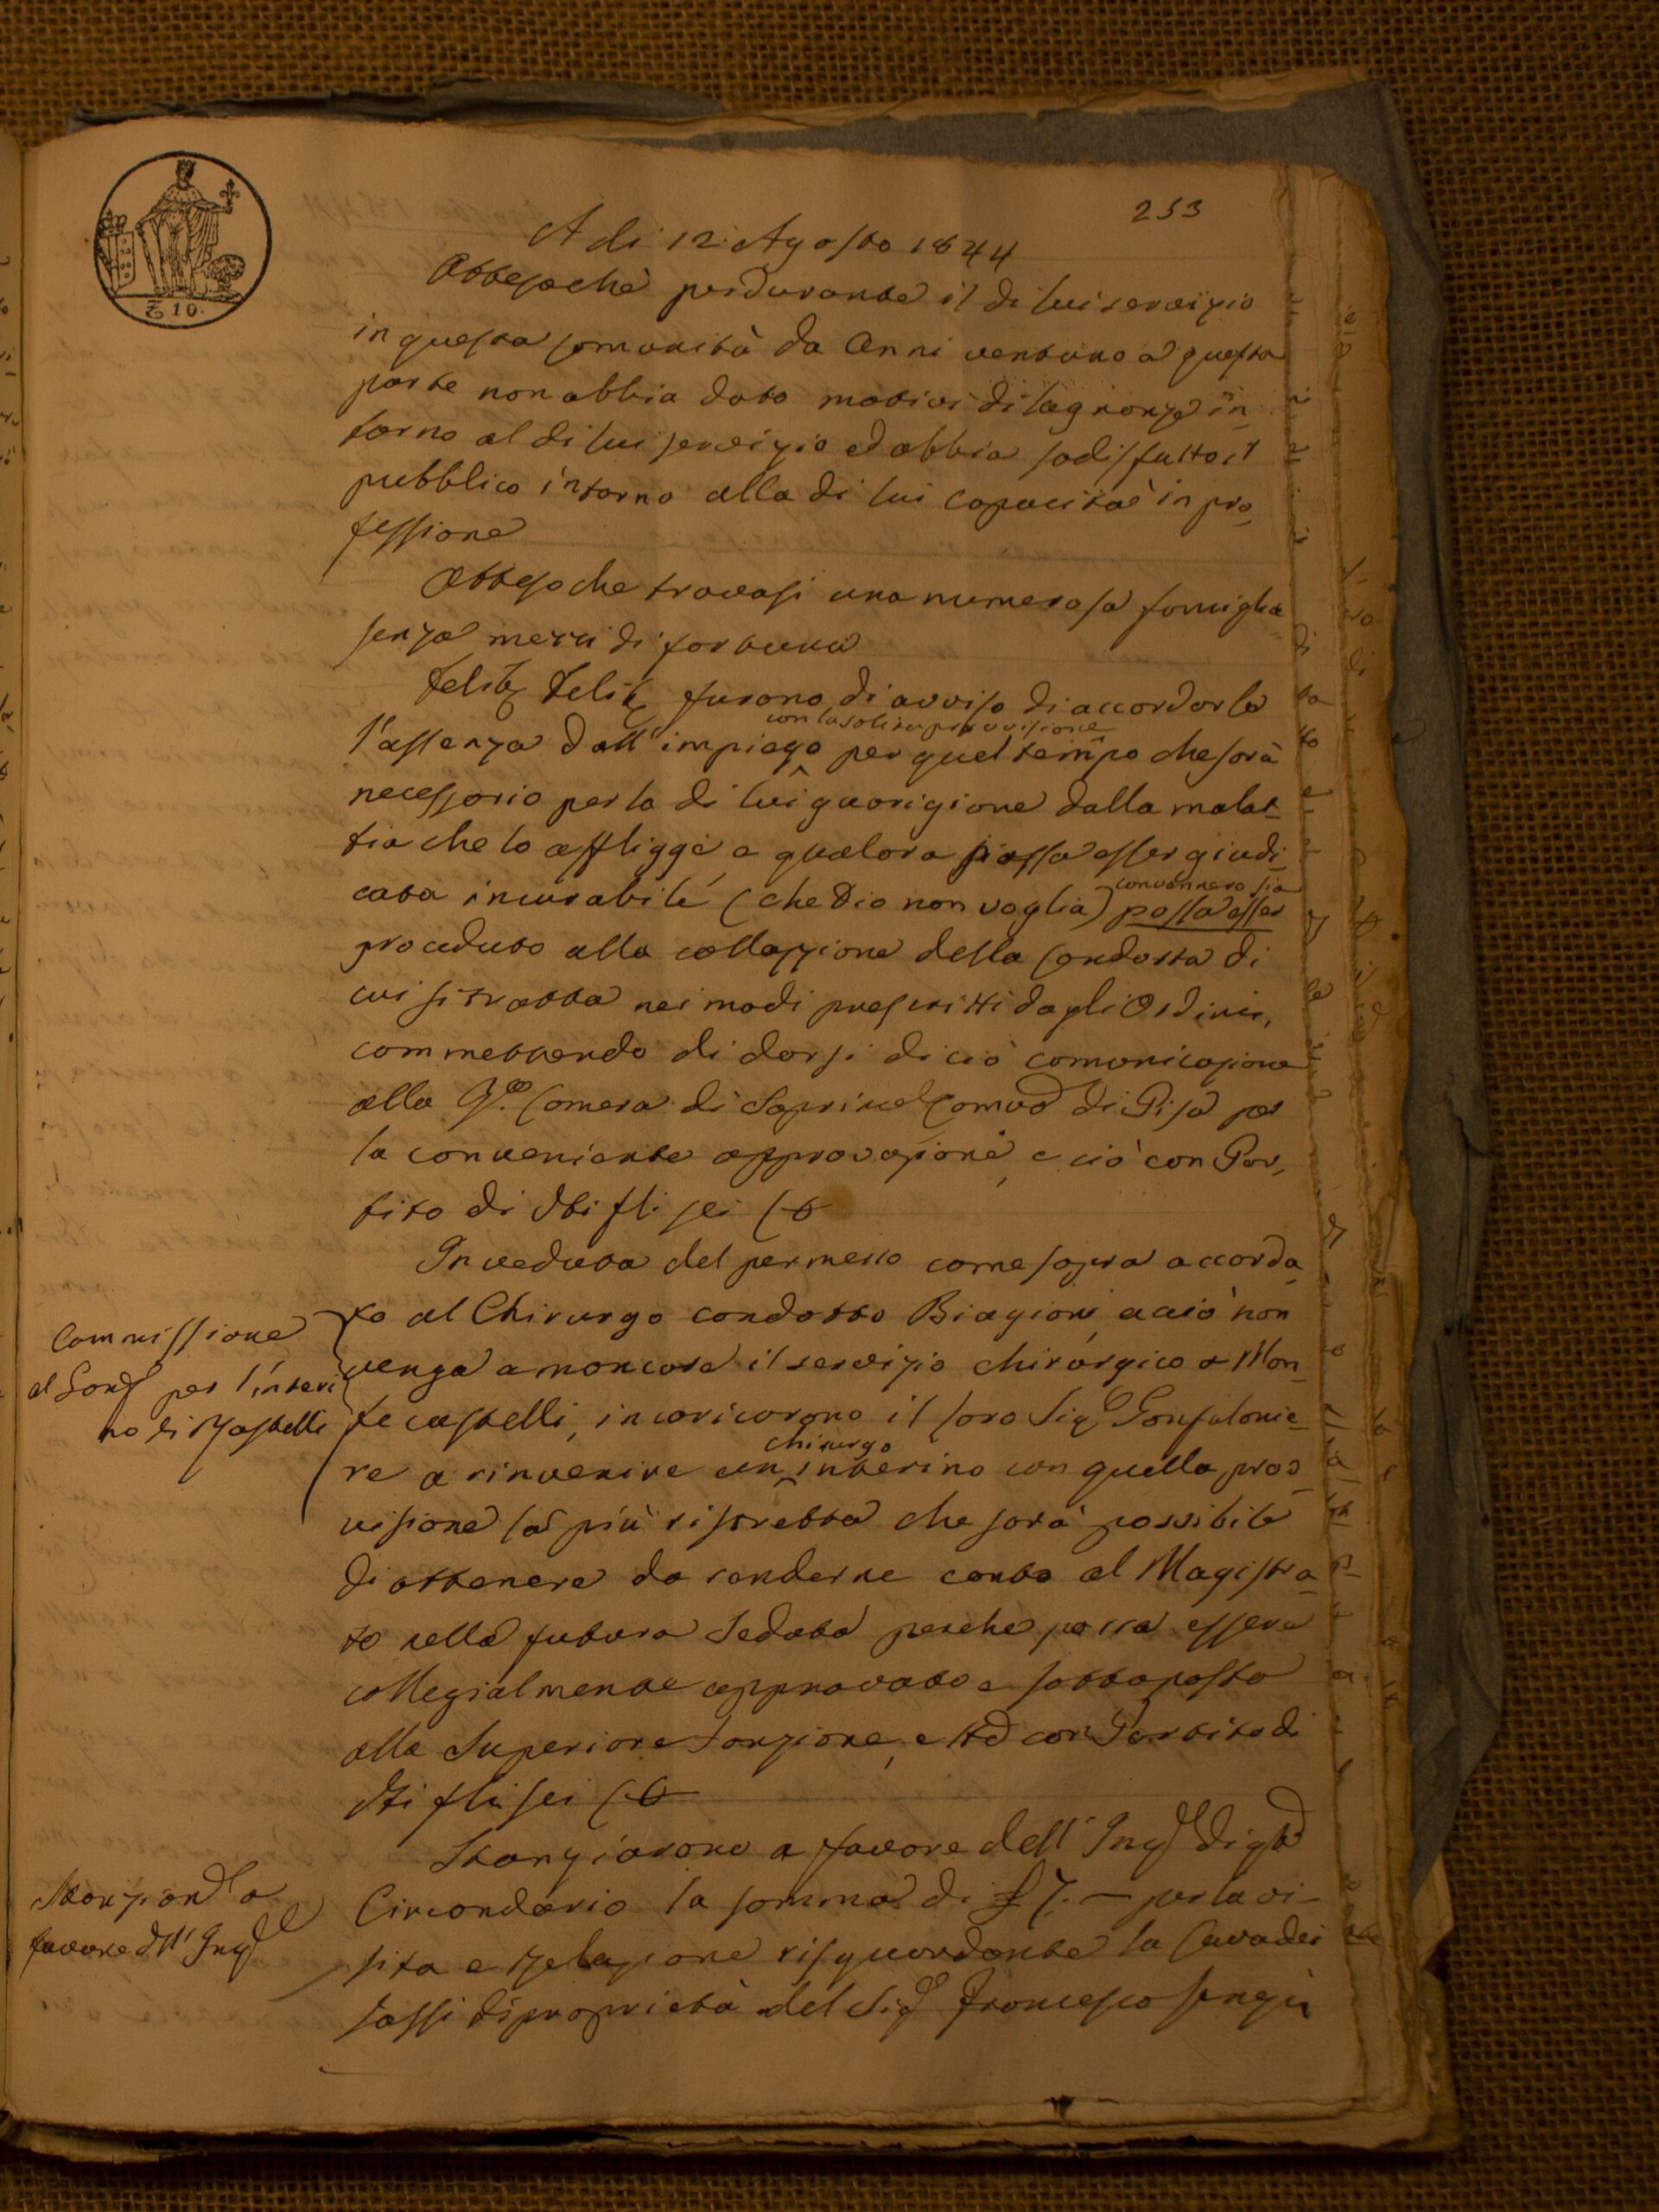 253
A di 12. Agosto 1844
Attesochè perdurante il di lui servizio
in questa Comunità da Anni ventuno a questa
parte non abbia dato motivi di lagnanze in-
torno al di lui servizio ed abbia sodisfatto il
pubblico intorno alla di lui capacità in pro-
fessione
Attesoche trovasi una numerosa famiglia
senza mezzi di fortuna
furono di avviso di accordarle
con la solita provvisione
l'assenza dall'impiego per quel tempo che sarà
necessario per la di lui guarigione dalla malat-
tia che lo affligge, e qualora possa esser giudi
convennero sia
cata incurabile (che Dio non voglia) possa esser
proceduto alla collazione della Condotta di
cui si tratta nei modi prescritti dagli Ordini,
commettendo di darsi di ciò comunicazione
alla Camera di Soprind Comva di Pisa per
la conveniente approvazione, e ciò con Par-
tito di Vti fli sei
In veduta del permesso come sopra accorda
Commissione
al Gonfe per l'interi
no di MCastelli
to al Chirurgo condotto Biagioni, acciò non
venga a mancare il servizio chirurgico a Mon
tecastelli, incaricarono il loro Sige Gonfalonie-
chirurgo
re a rinvenire un interino con quella prov
visione la più ristretta che sarà possibile
di ottenere da renderne conto al Magistra-
to nella futura Seduta perche possa essere
collegialmente approvato e sottoposto
alla Superiore Sanzione, e ttò con Partito di
Vti fli sei
Stanziarono a favore dell'Inge di qto
Stanziamto a
favore dll'Inge
Circondario la somma di £ 7. — per la vi-
sita e Relazione risguardante la Cava dei
sassi di proprietà del Sige Francesco